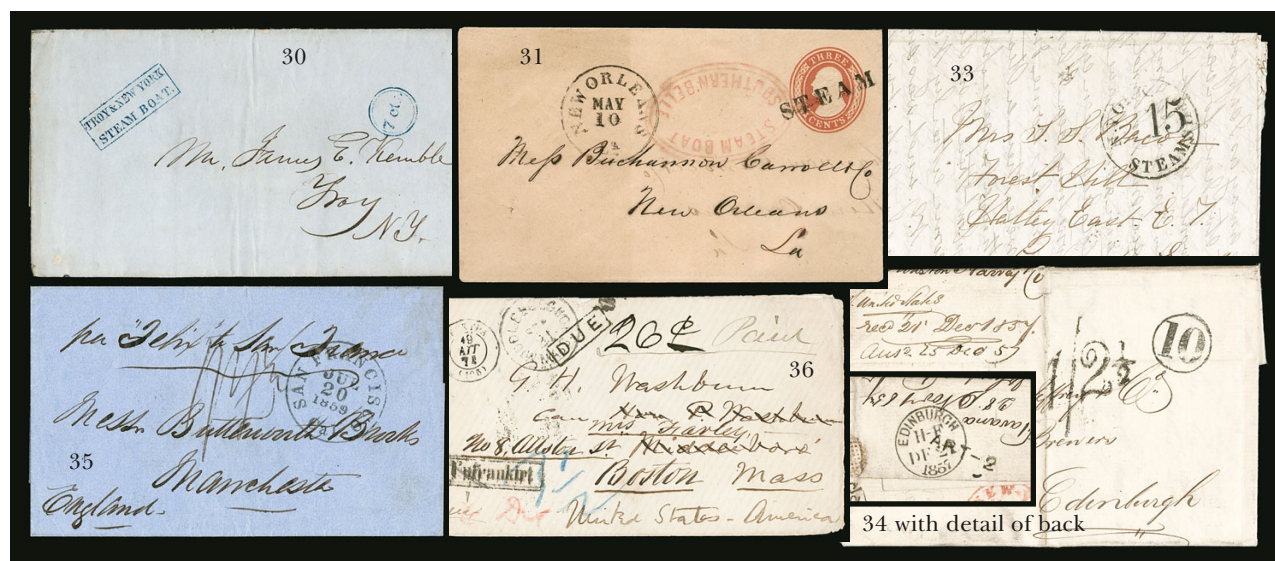 30
TROY & NEW YORK
STEAM BOAT.
7 cts.
Mr. James E. Kemble
Troy
N.Y.
31
NEW ORLEANS
MAY
10
LA
SOUTHERN BELLE
STEAM BOAT
THREE
CENTS
STEAM
Mess Buchannon Carroll & Co
New Orleans
La
33
15
STEAMSHIP
Mrs
Forest Hill
Hatley East
35
per "Felix" to San Francisco
SAN FRANCISCO
JUL
20
1859
Messrs Butterworth Brooks
Manchester
England
36
DUE
26¢ Paid
G. H. Washburn
Care
Mrs Farley
No 8, Allston St.
Boston Mass
Unfrankirt
United States - America
United States
recd 21 Decr 1857
ansd 25 Dec 57
Havana
EDINBURGH
DE 21
1857
ART-2
NEW
1/2½
10
Brewers
Edinburgh
34 with detail of back